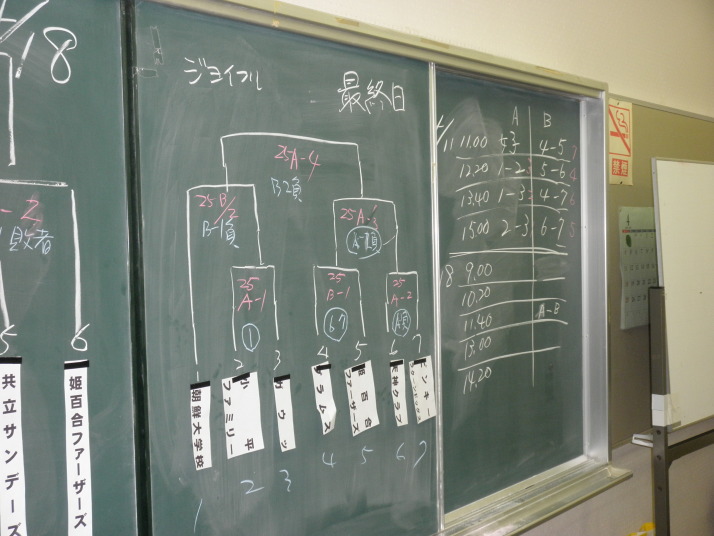 18
-2
敗者
5
6
共立サンデーズ
姫百合ファーザーズ
ジョイフル
最終日
25A-4
B2負
25B/2
B-1負
25A-3
25
A-1
①
25
B-1
25
A-2
1
2
3
4
5
6
7
朝鮮大学校
小平
ファミリー
天神クラブ
1
2
3
4
5
6
7
A B
11 11.00 4-5 7
12.20 1-2 3 5-6 4
13.40 1-3 4-7 6
15.00 2-3 6-7 5
18 9.00
10.20
11.40 A-B
13.00
14.20
禁煙